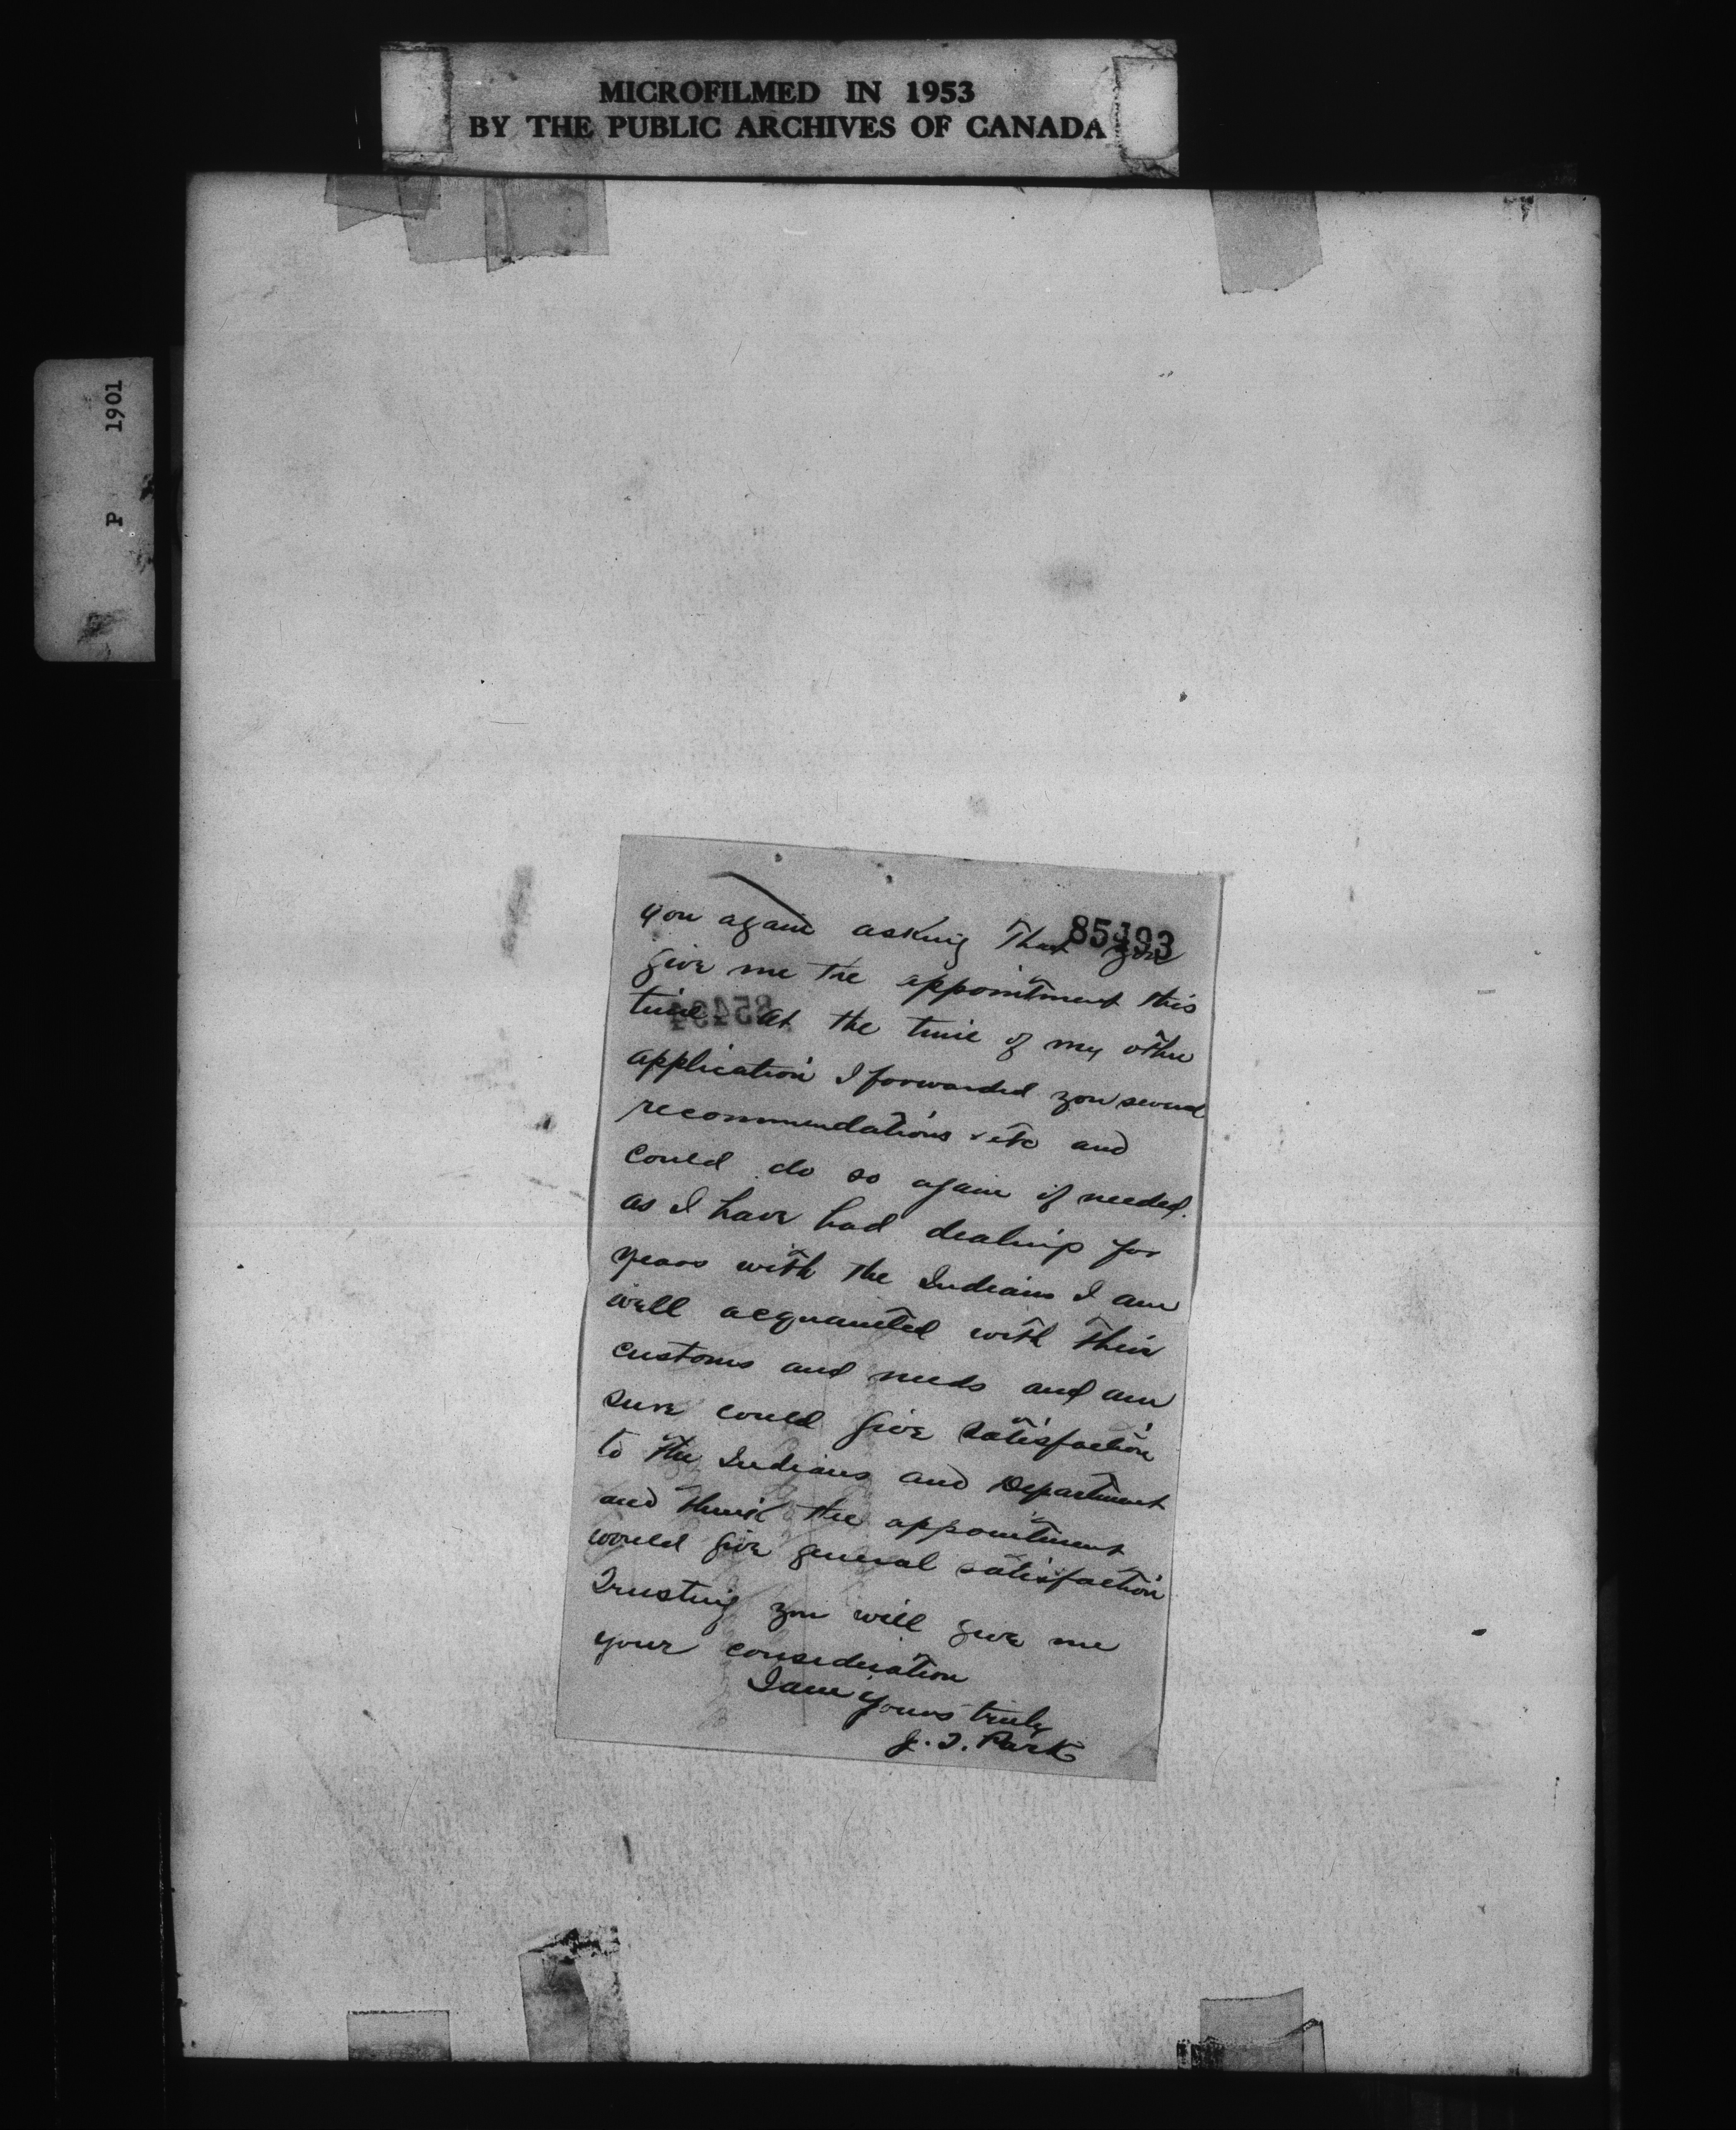 MICROFILMED IN 1953
BY THE PUBLIC ARCHIVES OF CANADA
P 1901
85493
you again asking that you
give me the appointment this
time at the time of my other
application I forwarded you several
recommendations etc and
could do so again if needed.
as I have had dealings for
years with the Indians I am
well acquainted with their
customs and needs and am
sure could give satisfaction
to the Indians and Department
and think the appointment
would give general satisfaction
Trusting you will give me
your consideration
I am yours truly
J. T. Park